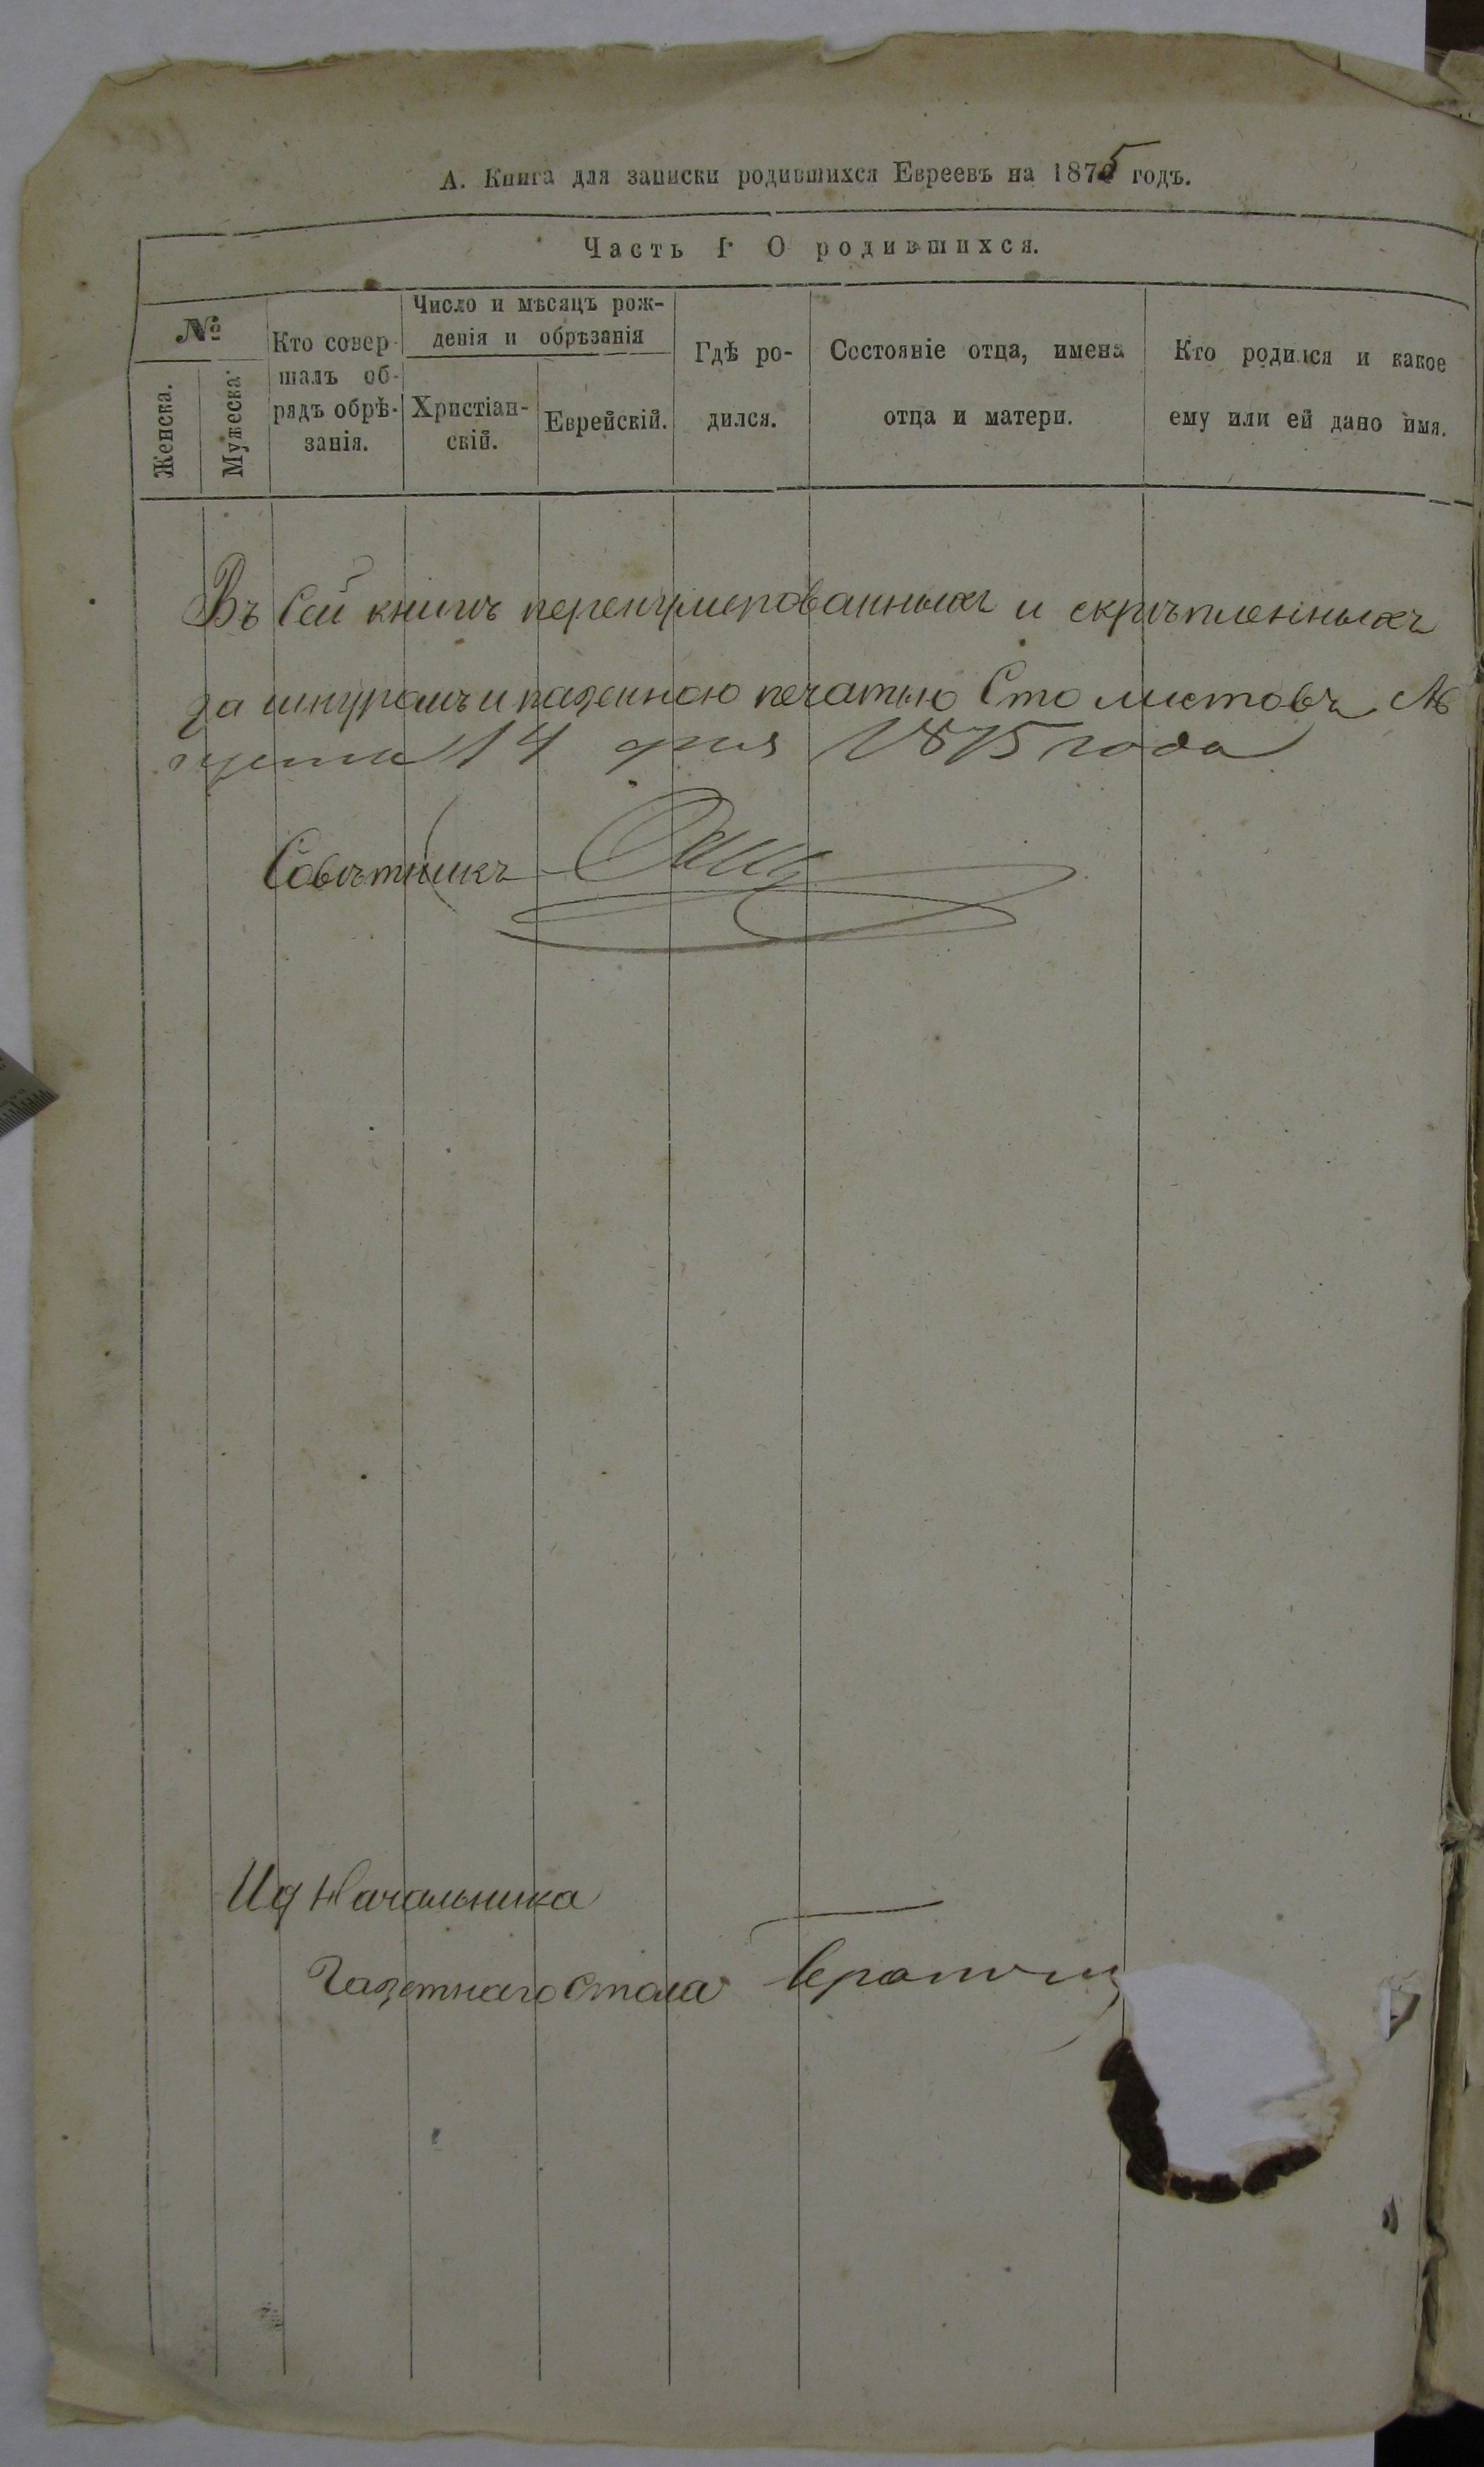 А. Книга для записки родившихся Евреевъ на 1875 годъ.
Часть I О родившихся.
№
Женска.
Мужеска
Кто совер-
шалъ об-
рядъ обрѣ-
занія.
Число и мѣсяцъ рож-
денія и обрѣзанія
Христіан-
скій.
Еврейскій.
Гдѣ ро-
дился.
Состояніе отца, имена
отца и матери.
Кто родился и какое
ему или ей дано имя.
Въ сей книгѣ перенумерованныхъ и скрѣпленныхъ
за шнуромъ и казенною печатью Сто листовъ Ав
густа 14 дня 1875 года
Совѣтникъ
И д Начальника
Газетнаго Стола